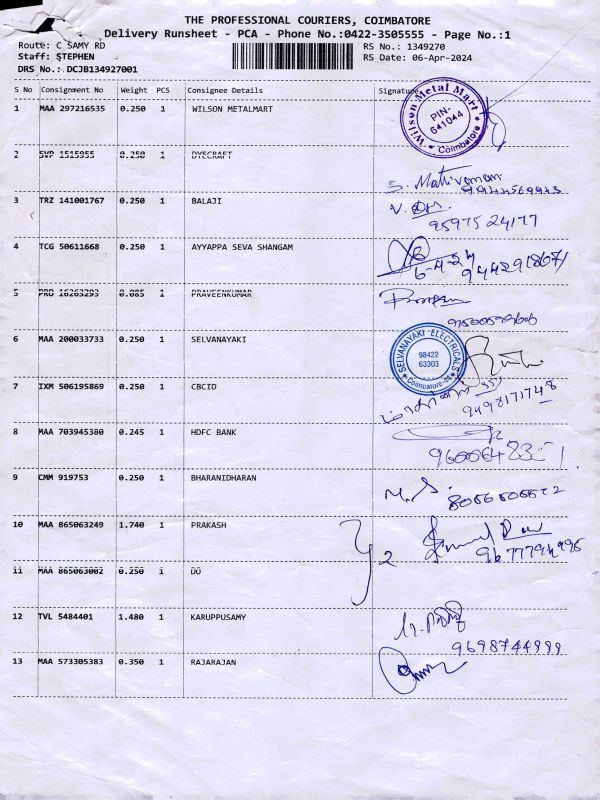 THE PROFESSIONAL COURIERS, COIMBATORE
Delivery Runsheet - PCA - Phone No.:0422-3505555 - Page No.:1
Route: C SAMY RD
RS No.: 1349270
Staff: STEPHEN
RS Date: 06-Apr-2024
DRS No.: DCJB134927001
S No Consignment No Weight PCS Consignee Details Signature
1 MAA 297216535 0.250 1 WILSON METALMART
Wilson Metal Mart
PIN-
641044
* Coimbatore *
2 SVP 1515955 0.250 1 DYECRAFT
S. Mathivanan
9944569943
3 TRZ 141001767 0.250 1 BALAJI
V.
9597524177
4 TCG 50611668 0.250 1 AYYAPPA SEVA SHANGAM
6-4-24
5 PRO 16263293 0.085 1 PRAVEENKUMAR
6 MAA 200033733 0.250 1 SELVANAYAKI
SELVANAYAKI ELECTRICALS
98422
63303
Coimbatore-44
7 IXM 506195869 0.250 1 CBCID
9498171748
8 MAA 703945380 0.245 1 HDFC BANK
9 CMM 919753 0.250 1 BHARANIDHARAN
M. S.
10 MAA 865063249 1.740 1 PRAKASH
2
11 MAA 865063002 0.250 1 DO
12 TVL 5484401 1.480 1 KARUPPUSAMY
9698744999
13 MAA 573305383 0.350 1 RAJARAJAN